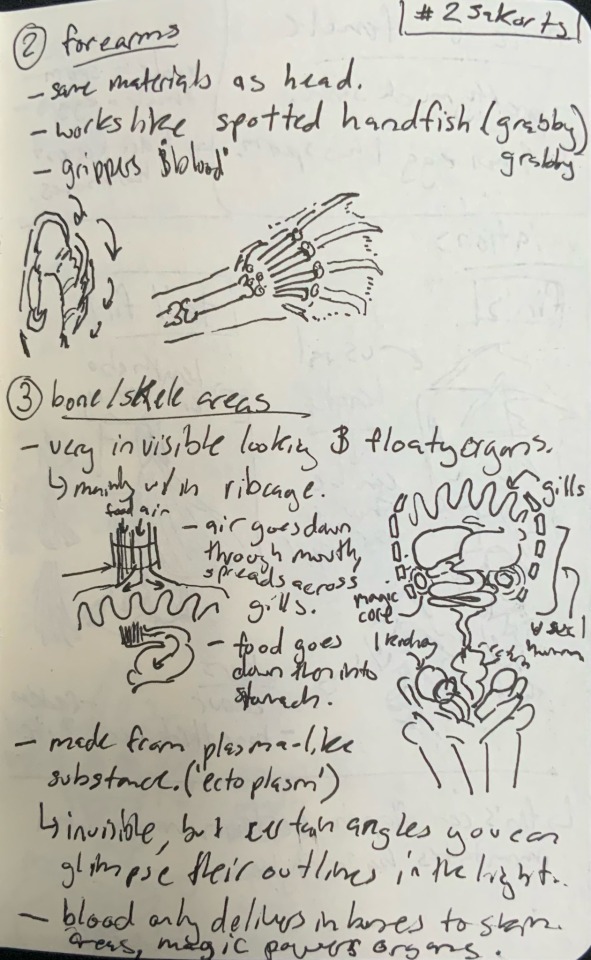 # 2 Sakarts
② forearms
- same materials as head.
- works like spotted handfish (grabby)
grabby
- grippers 'blood'
③ bone/skele areas
- very invisible looking & floaty organs.
↳ mainly w/in ribcage.
food air
gills
- air goes down
through mouth,
spreads across
gills.
magic
core
- food goes
down then into
stomach.
1 kidney
human
- made from plasma-like
substance. ('ectoplasm')
↳ invisible, but certain angles you can
glimpse their outlines in the light.
- blood only delivers in bones to skin
areas, magic powers organs.